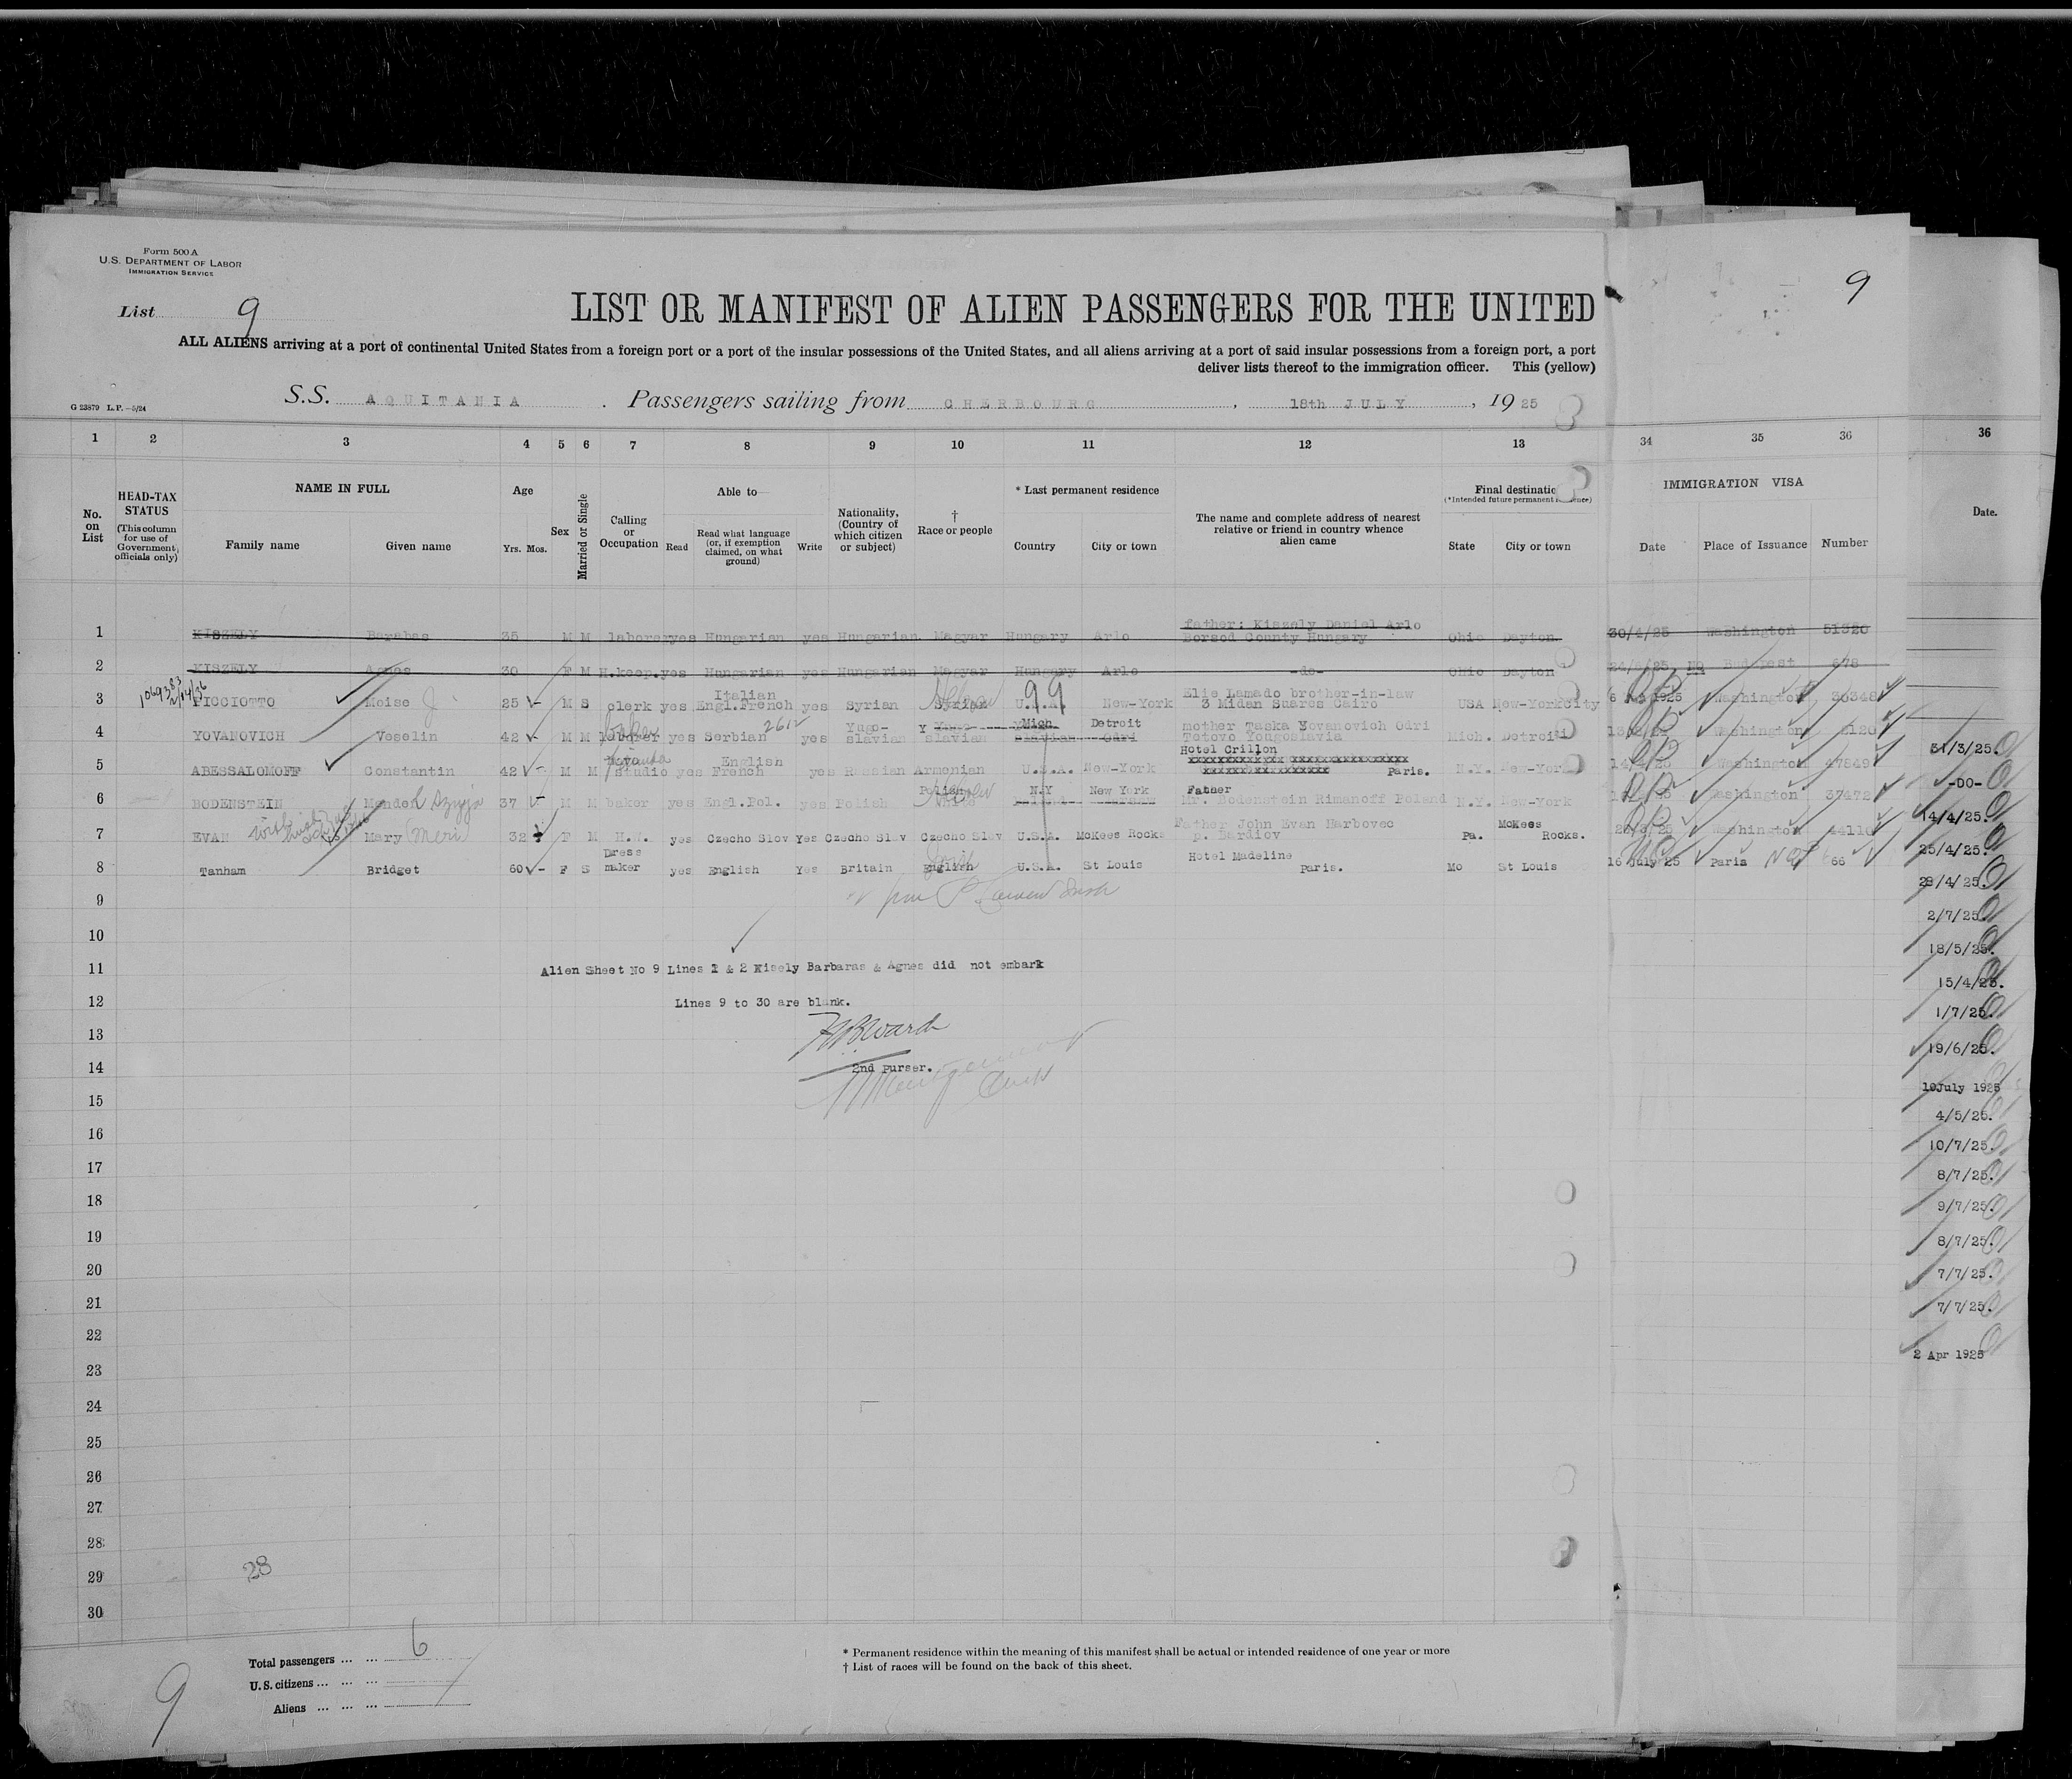 Form 500 A
U.S. DEPARTMENT OF LABOR
IMMIGRATION SERVICE
List 9
9
LIST OR MANIFEST OF ALIEN PASSENGERS FOR THE UNITED
ALL ALIENS arriving at a port of continental United States from a foreign port or a port of the insular possessions of the United States, and all aliens arriving at a port of said insular possessions from a foreign port, a port
deliver lists thereof to the immigration officer. This (yellow)
G 23879 L.P.-5/24
S.S. AQUITANIA. Passengers sailing from CHERBOURG, 18th JULY, 1925
1 2 3 4 5 6 7 8 9 10 11 12 13 34 35 36 36
No. on List
HEAD-TAX STATUS (This column for use of Government officials only)
NAME IN FULL
Family name Given name
Age
Yrs. Mos.
Sex
Married or Single
Calling or Occupation
Able to
Read
Read what language (or, if exemption claimed, on what ground)
Write
Nationality, (Country of which citizen or subject)
† Race or people
* Last permanent residence
Country City or town
The name and complete address of nearest relative or friend in country whence alien came
Final destination
(*Intended future permanent residence)
State City or town
IMMIGRATION VISA
Date Place of Issuance Number
Date.
1 KISZELY Barabas 35 M M laborer yes Hungarian yes Hungarian Magyar Hungary Arlo father: Kiszely Daniel Arlo Borsod County Hungary Ohio Dayton 30/4/25 Washington 51320
2 KISZELY Agnes 30 F M H.keep. yes Hungarian yes Hungarian Magyar Hungary Arlo -do- Ohio Dayton NQ Budapest 678
3 PICCIOTTO Moise J 25 M S clerk yes Italian Engl.French yes Syrian Syrian Hebrew U.S.A. 99 New-York Elie Lamado brother-in-law 3 Midan Suares Cairo USA New-York City 1925 Washington 30348
4 YOVANOVICH Voselin 42 M M laborer yes Serbian 2612 yes Yugo-slavian Yugo-slavian Mich. Detroit Odri mother Taska Yovanovich Odri Totovo Yougoslavia Mich. Detroit Washington
5 ABESSALOMOFF Constantin 42 M M studio yes English French yes Russian Armenian U.S.A. New-York Hotel Crillon Paris. N.Y. New-York 14/4/25 Washington 47849
6 BODENSTEIN Mendel 37 M M baker yes Engl.Pol. yes Polish Polish Hebrew N.Y New York Father Mr. Bodenstein Rimanoff Poland N.Y. New-York Washington 37472
7 EVAN Mary (Meri) 32 F M H.W. yes Czecho Slov Yes Czecho Slav Czecho Slov U.S.A. McKees Rocks Father John Evan Harbovec p. Bardiov Pa. McKees Rocks. Washington 44110
8 Tanham Bridget 60 F S Dress maker yes English Yes Britain English Irish U.S.A. St Louis Hotel Madeline Paris. Mo St Louis 16 July 25 Paris NQ 66
9
10
11 Alien Sheet No 9 Lines 1 & 2 Kisely Barbaras & Agnes did not embark
12 Lines 9 to 30 are blank.
13
14 2nd purser.
15
16
17
18
19
20
21
22
23
24
25
26
27
28
29
30
28
31/3/25.
-DO-
14/4/25.
25/4/25.
28/4/25.
2/7/25.
18/5/25.
15/4/25.
1/7/25.
19/6/25.
10July 1925
4/5/25.
10/7/25.
8/7/25.
9/7/25.
8/7/25.
7/7/25.
7/7/25.
2 Apr 1925
Total passengers ... ... 6
U.S. citizens ... ... ...
Aliens ... ... ...
9
* Permanent residence within the meaning of this manifest shall be actual or intended residence of one year or more
† List of races will be found on the back of this sheet.